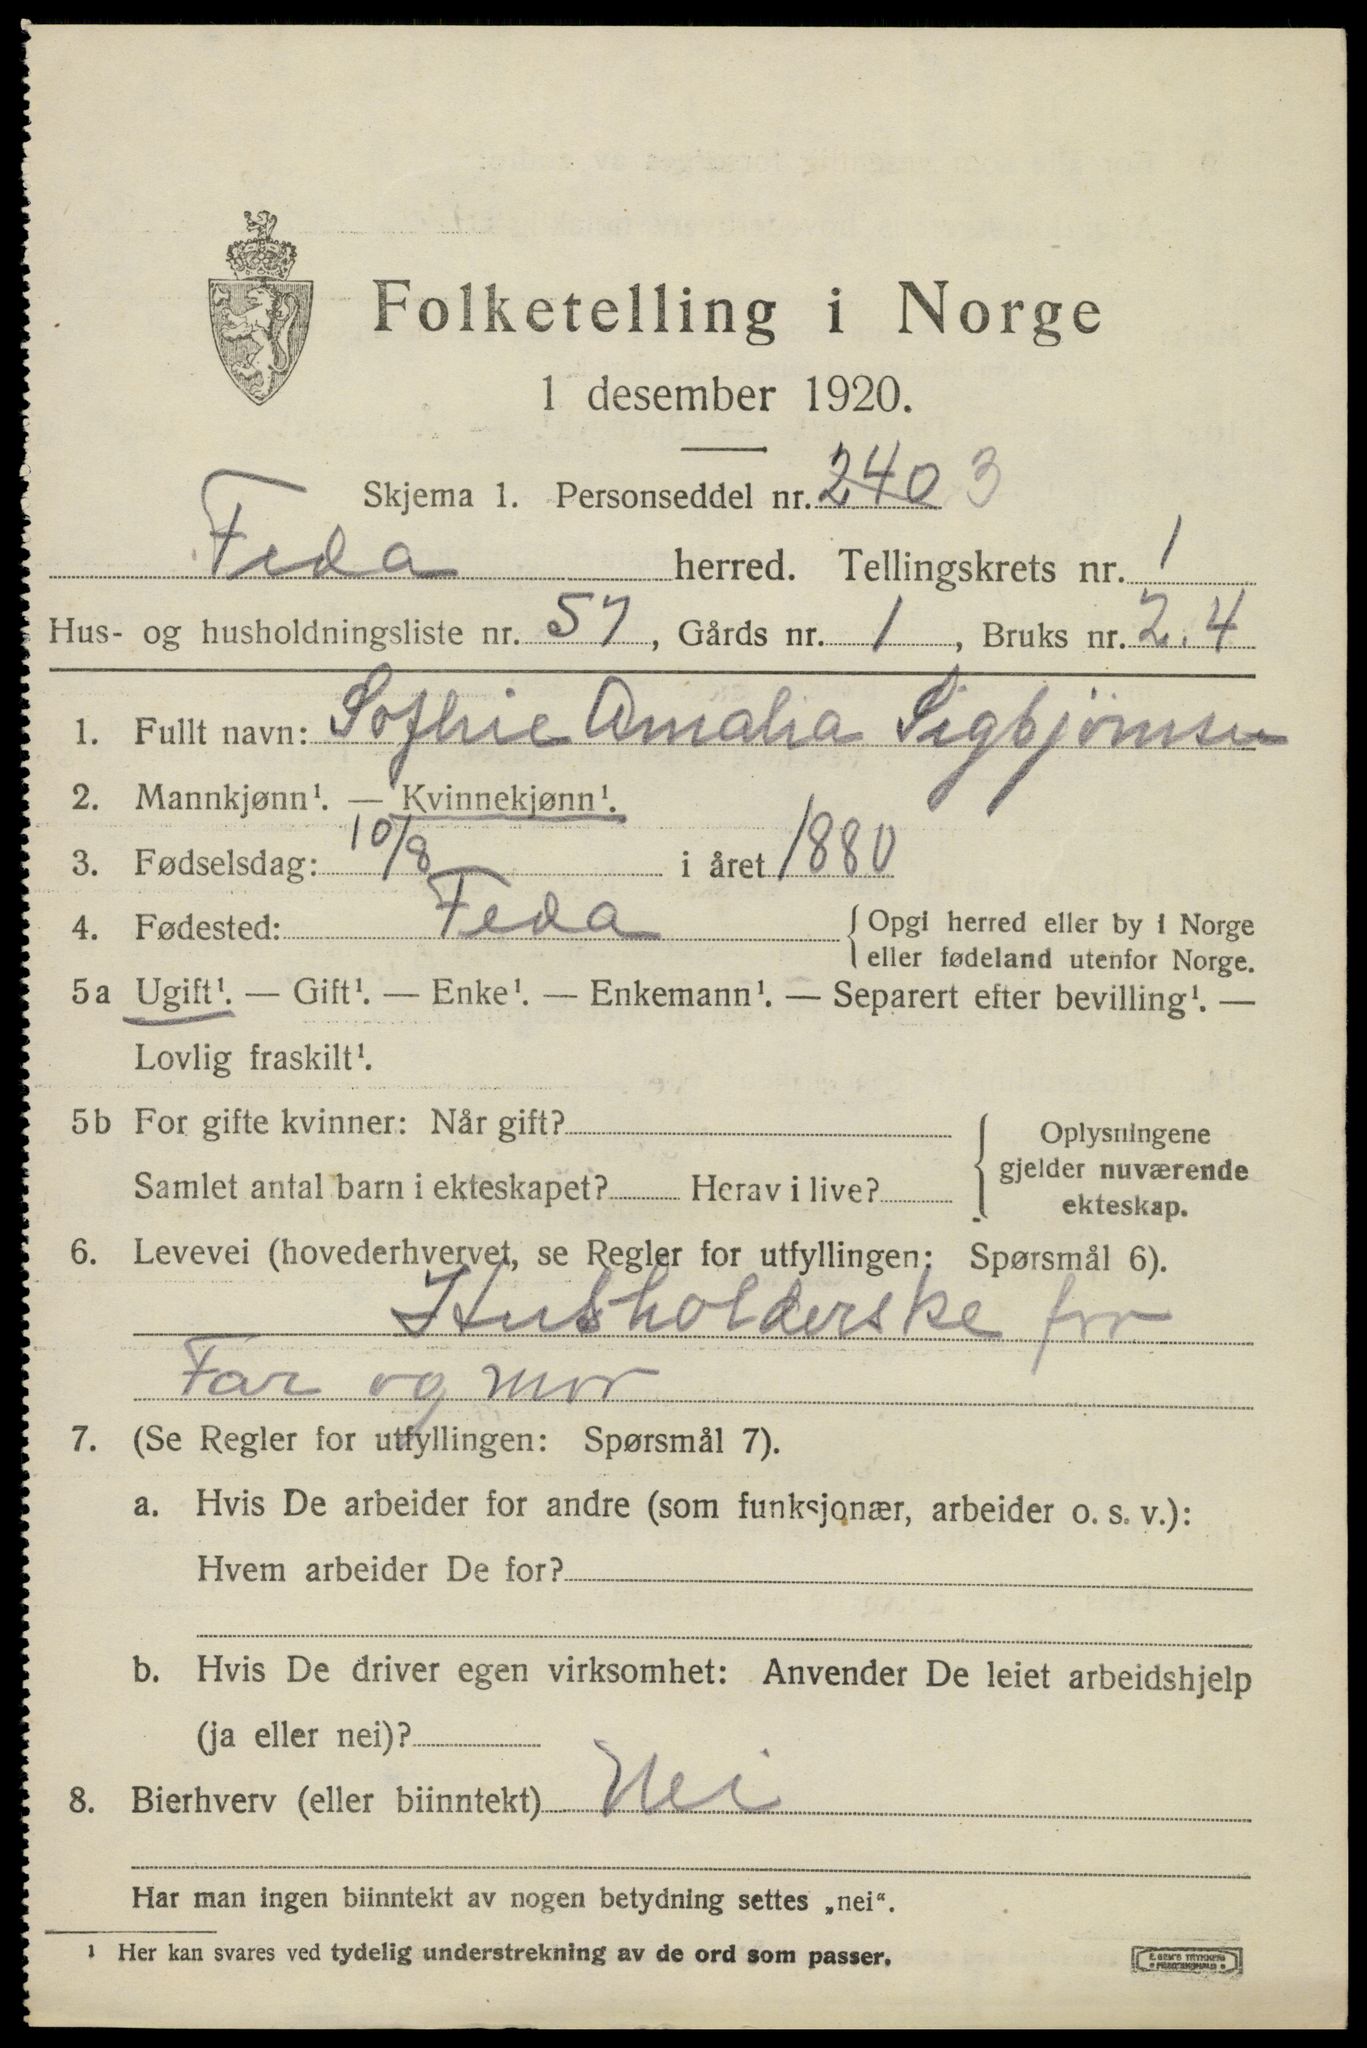 Folketelling i Norge
1 desember 1920.
Skjema 1. Personseddel nr. 240 3
Feda herred. Tellingskrets nr. 1
Hus- og husholdningsliste nr. 57, Gårds nr. 1, Bruks nr. 2.4
1. Fullt navn: Sofhie Amalia Sigbjørnsen
2. Mannkjønn¹. — Kvinnekjønn¹.
3. Fødselsdag: 10/8 i året 1880
4. Fødested: Feda {Opgi herred eller by i Norge
eller fødeland utenfor Norge.
5a Ugift¹. — Gift¹. — Enke¹. — Enkemann¹. — Separert efter bevilling¹. —
Lovlig fraskilt¹.
5b For gifte kvinner: Når gift? { Oplysningene
gjelder nuværende
ekteskap.
Samlet antal barn i ekteskapet? Herav i live?
6. Levevei (hovederhvervet, se Regler for utfyllingen: Spørsmål 6).
Husholderske for
Far og mor
7. (Se Regler for utfyllingen: Spørsmål 7).
a. Hvis De arbeider for andre (som funksjonær, arbeider o. s. v.):
Hvem arbeider De for?
b. Hvis De driver egen virksomhet: Anvender De leiet arbeidshjelp
(ja eller nei)?
8. Bierhverv (eller biinntekt) Nei
Har man ingen biinntekt av nogen betydning settes „nei“.
¹ Her kan svares ved tydelig understrekning av de ord som passer.